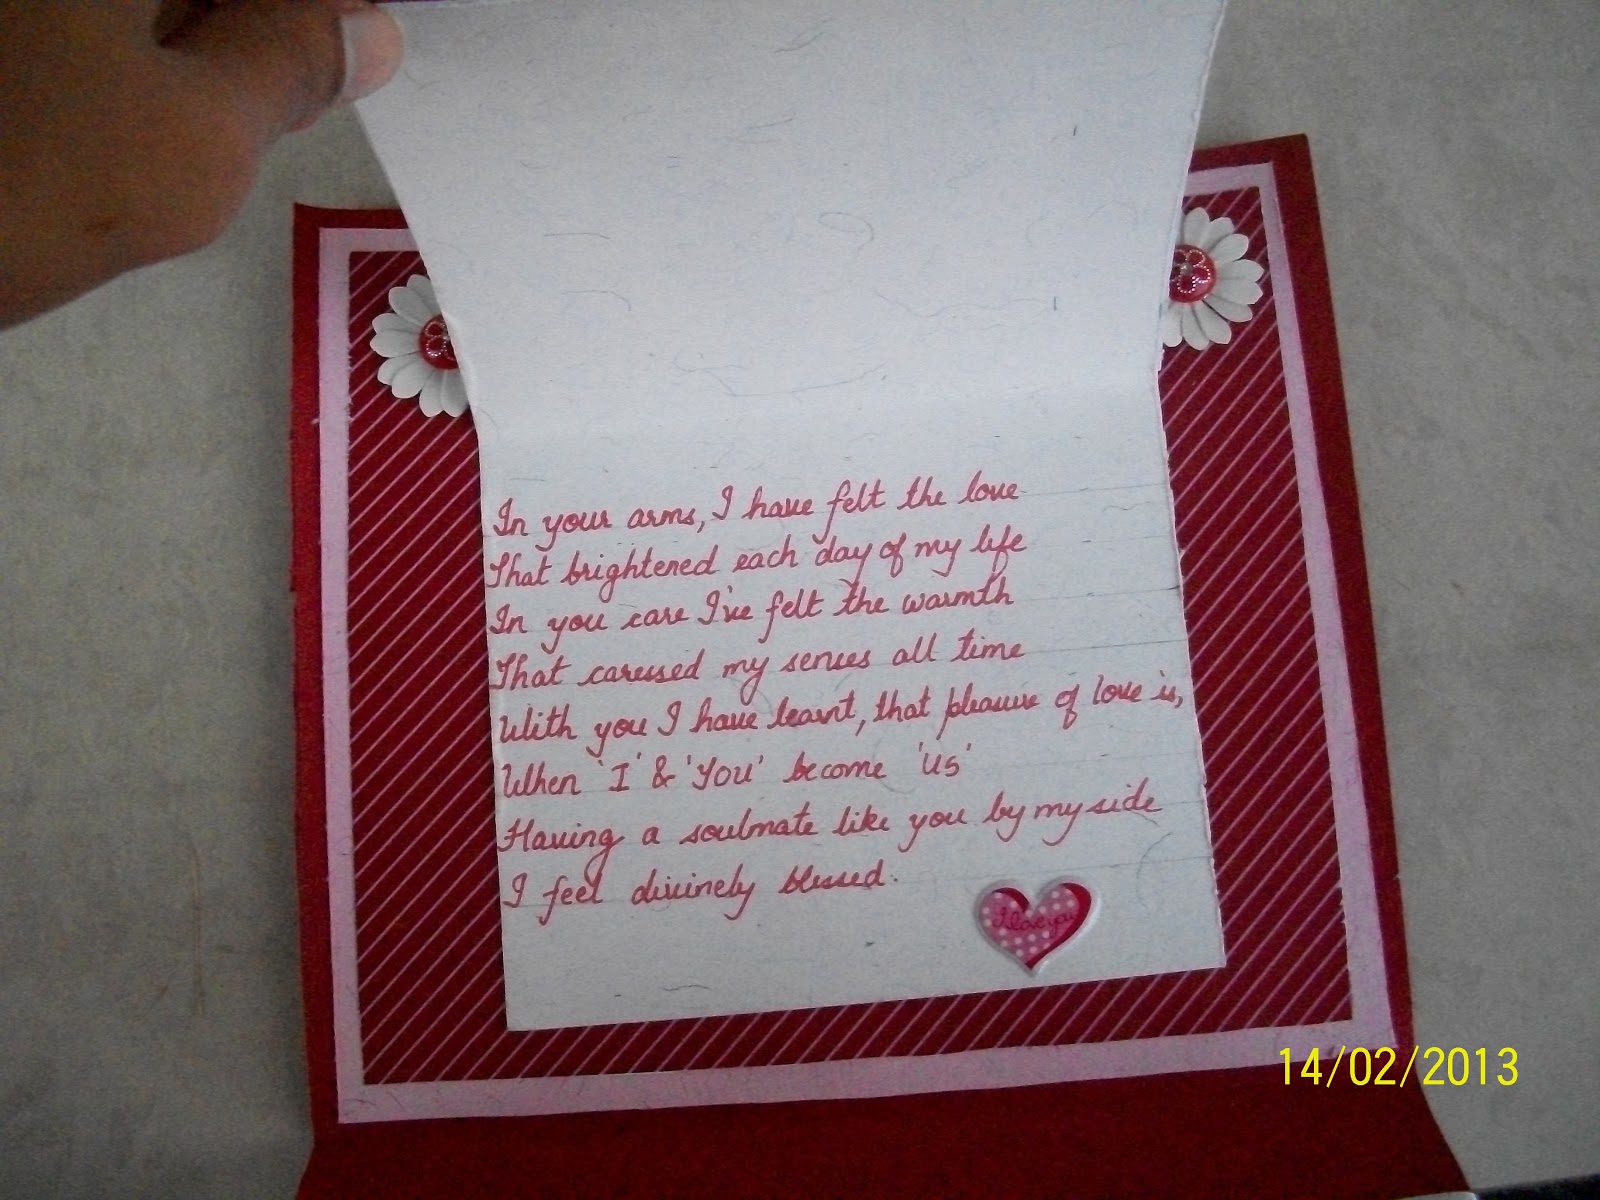 In your arms, I have felt the love
That brightened each day of my life
In you care I've felt the warmth
That caressed my senses all time
With you I have learnt, that pleasure of love is,
When 'I' & 'YOU' become 'US'
Having a soulmate like you by my side
I feel divinely blessed.
I love you
14/02/2013